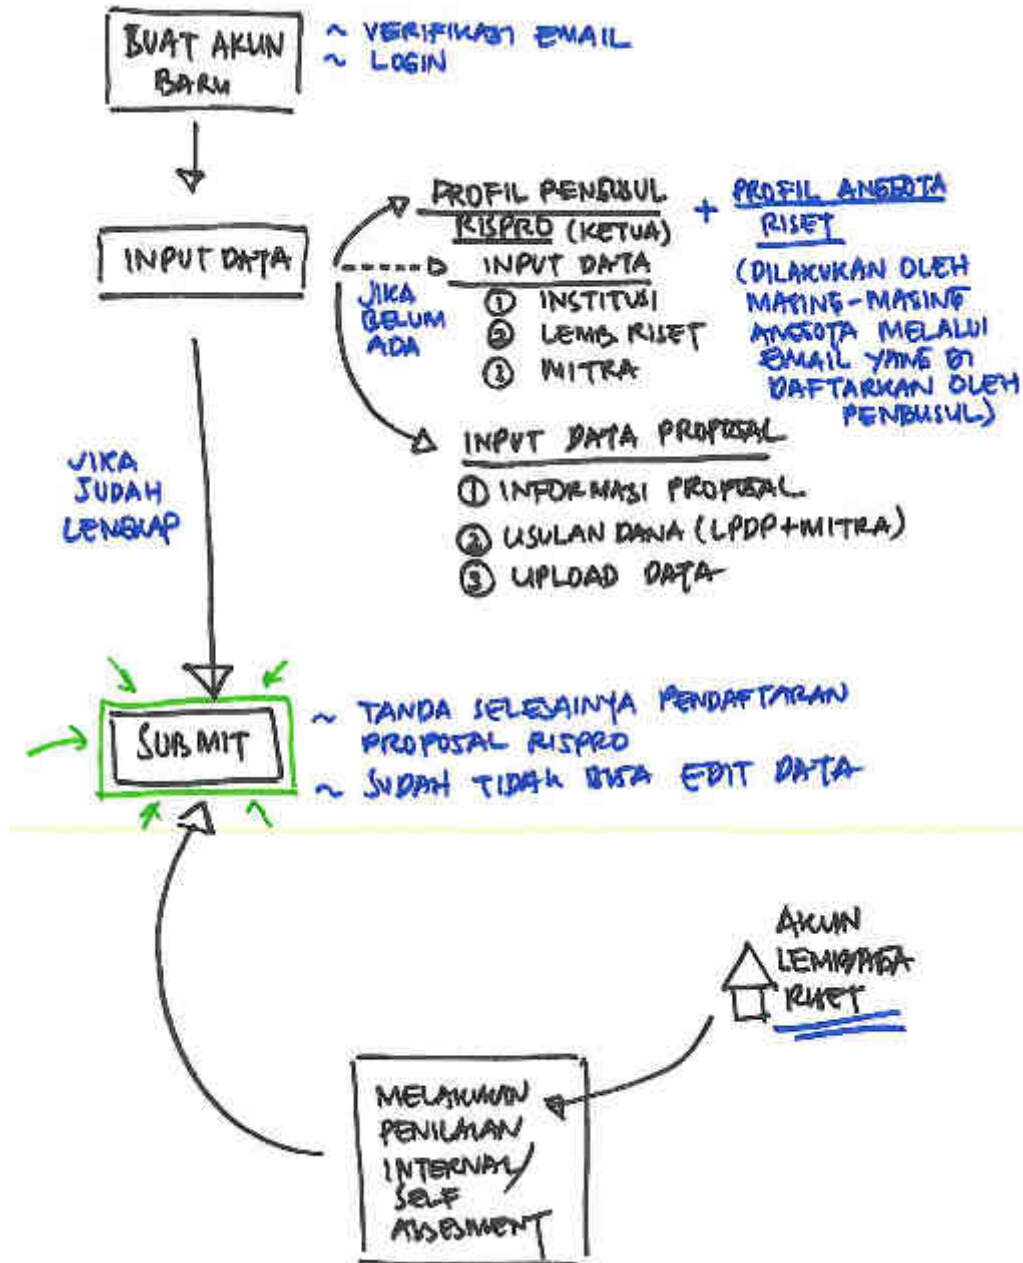 BUAT AKUN
BARU
~ VERIFIKASI EMAIL
~ LOGIN
INPUT DATA
PROFIL PENGUSUL
RISPRO (KETUA)
+ PROFIL ANGGOTA
RISET
(DILAKUKAN OLEH
MASING-MASING
ANGGOTA MELALUI
EMAIL YANG DI
DAFTARKAN OLEH
PENGUSUL)
JIKA
BELUM
ADA
INPUT DATA
① INSTITUSI
② LEMB. RISET
③ MITRA
INPUT DATA PROPOSAL
① INFORMASI PROPOSAL
② USULAN DANA (LPDP+MITRA)
③ UPLOAD DATA
JIKA
SUDAH
LENGKAP
SUBMIT
~ TANDA SELESAINYA PENDAFTARAN
PROPOSAL RISPRO
~ SUDAH TIDAK BISA EDIT DATA
AKUN
LEMBAGA
RISET
MELAKUKAN
PENILAIAN
INTERNAL/
SELF
ASSESMENT